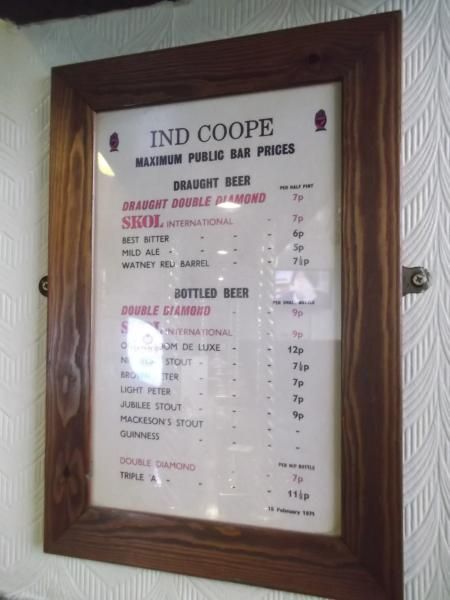 IND COOPE
MAXIMUM PUBLIC BAR PRICES
DRAUGHT BEER
PER HALF PINT
DRAUGHT DOUBLE DIAMOND 7p
SKOL INTERNATIONAL - 7p
BEST BITTER - - - 6p
MILD ALE - - - - 5p
WATNEY RED BARREL - - 7½p
BOTTLED BEER
PER SMALL BOTTLE
DOUBLE DIAMOND - - 9p
SKOL INTERNATIONAL - 9p
DE LUXE - - 12p
STOUT - - - 7½p
PETER - - - 7p
LIGHT PETER - - - 7p
JUBILEE STOUT - - - 9p
MACKESON'S STOUT - - -
GUINNESS - - - -
PER BOTTLE
DOUBLE DIAMOND - - 7p
TRIPLE 'A' - - - - 11½p
February 1971